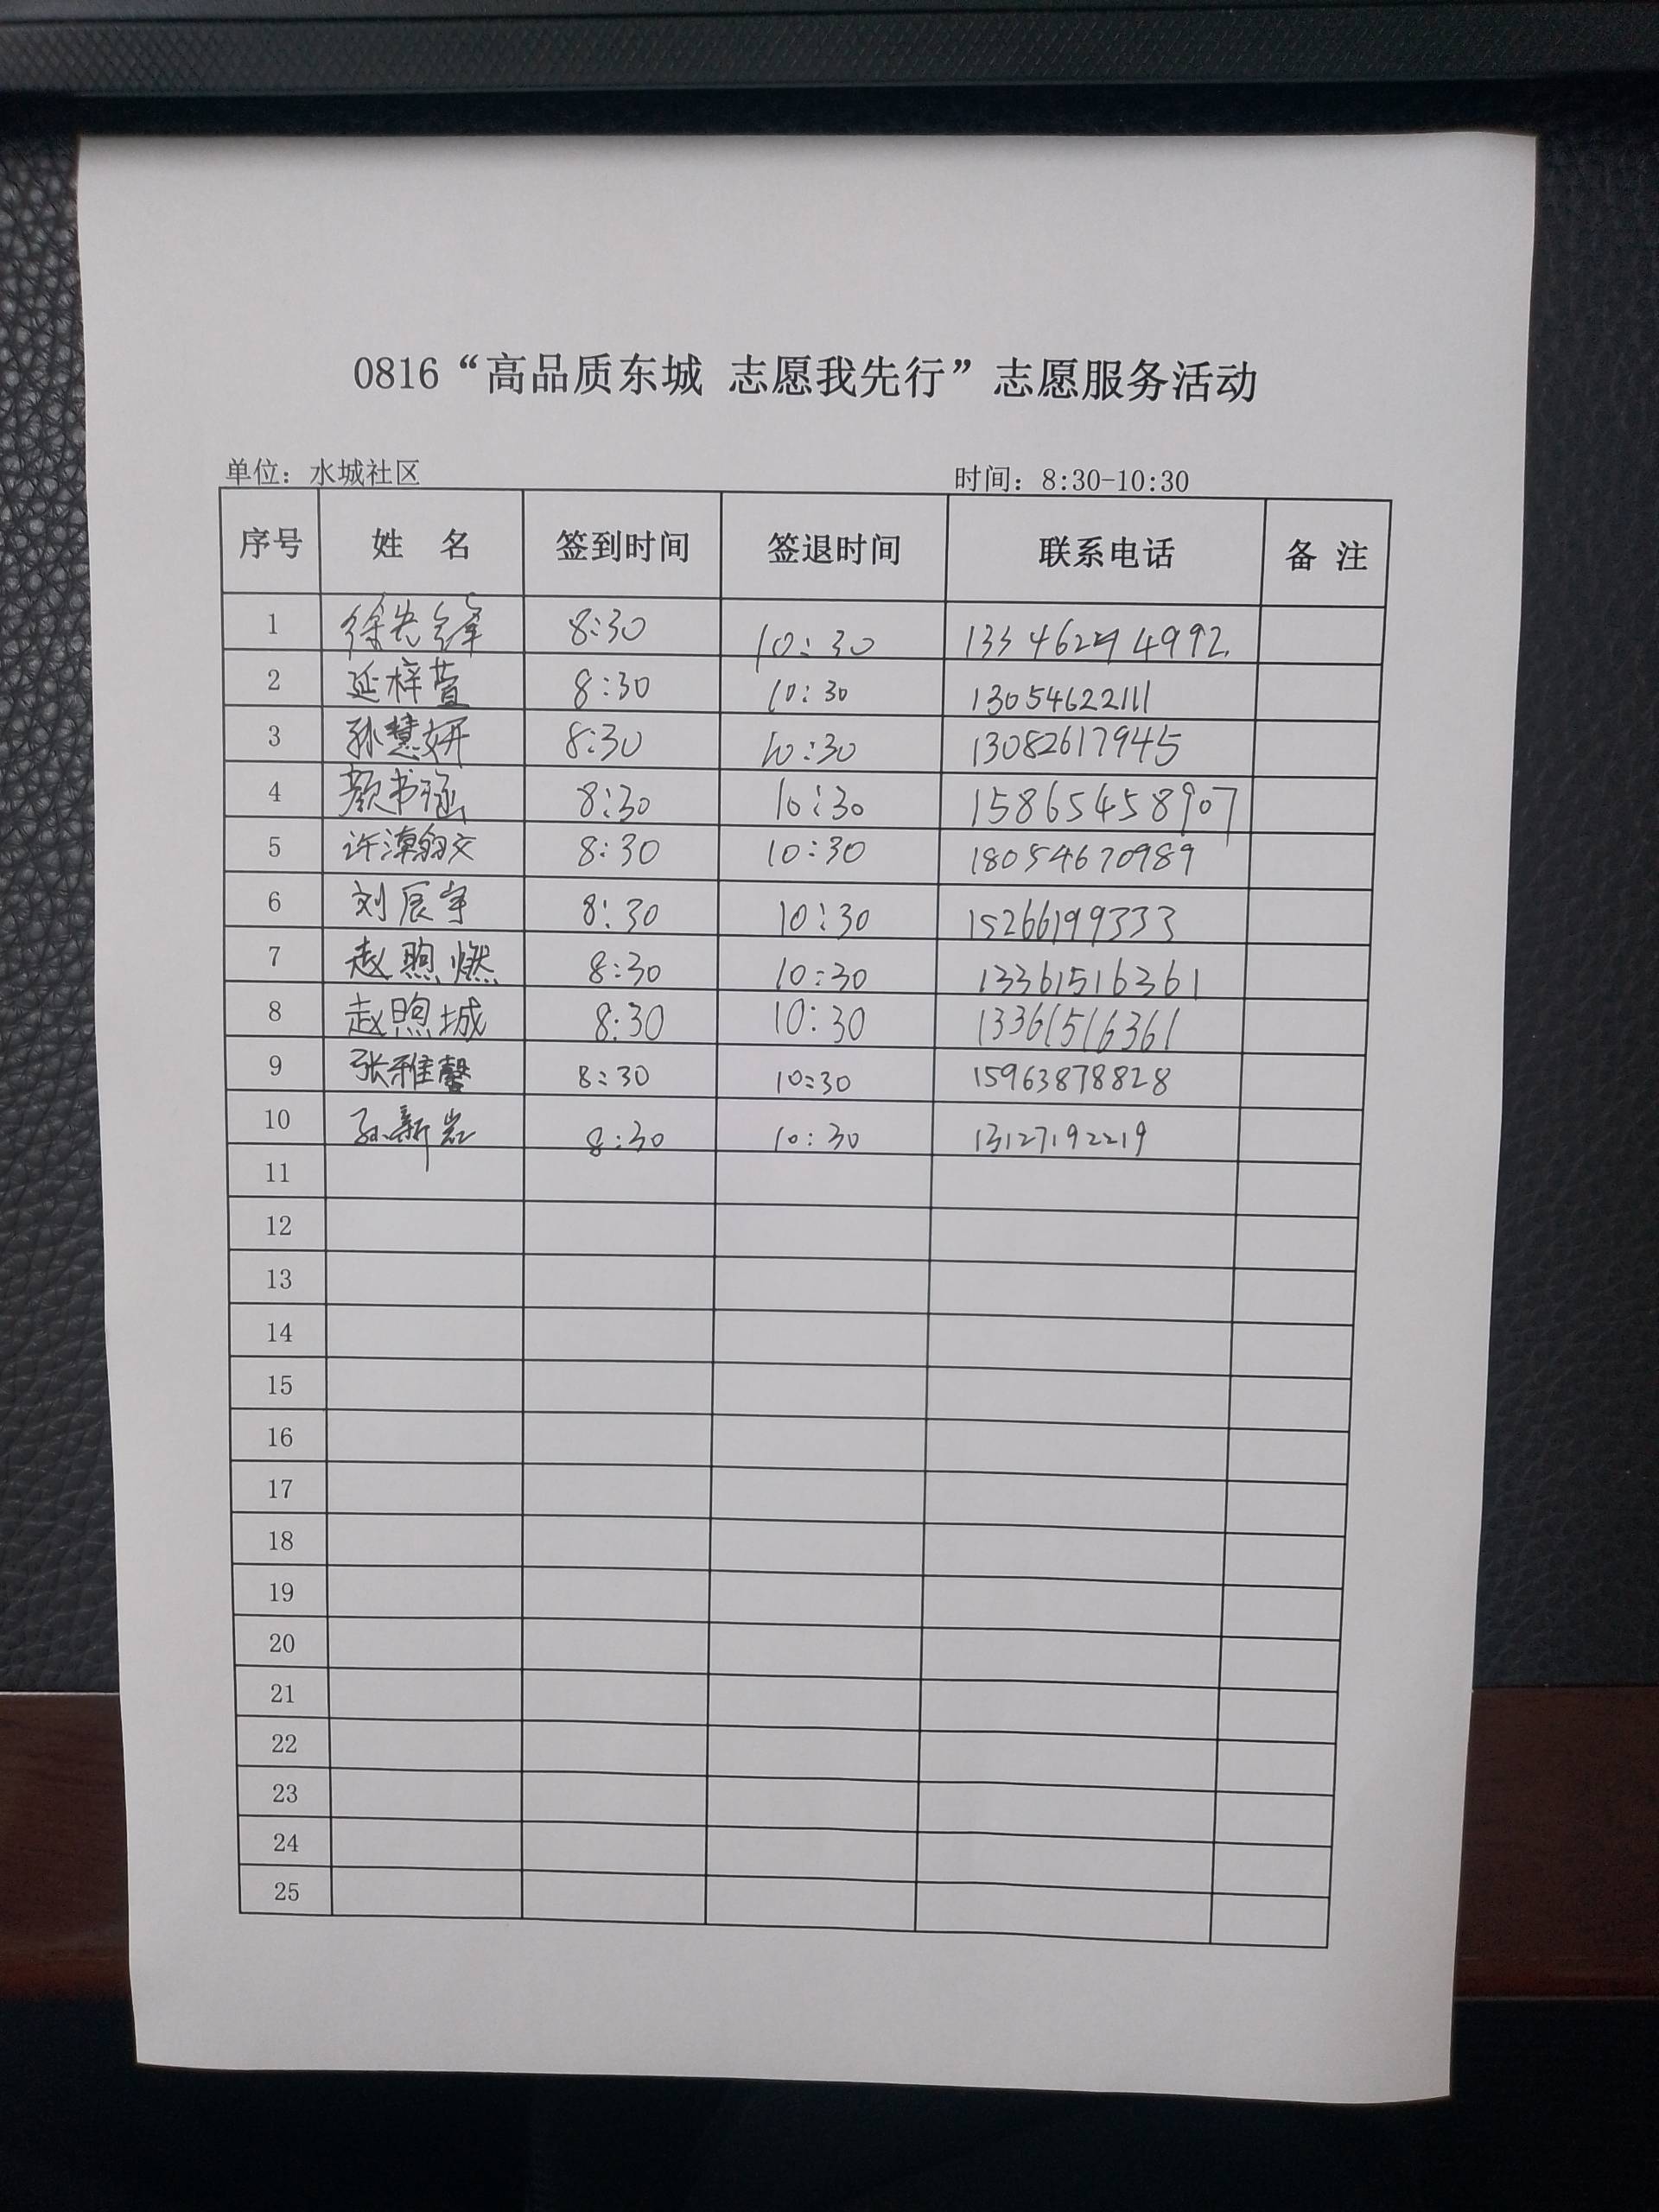 0816“高品质东城 志愿我先行”志愿服务活动
单位：水城社区 时间：8:30-10:30
序号 姓 名 签到时间 签退时间 联系电话 备 注
1 徐先锋 8:30 10:30
2 延梓萱 8:30 10:30 13054622111
3 孙慧妍 8:30 10:30 13082617945
4 颜书涵 8:30 10:30 15865458907
5 许漳翰文 8:30 10:30 18054670989
6 刘辰宇 8:30 10:30 15266199333
7 赵煦燃 8:30 10:30 13361516361
8 赵煦城 8:30 10:30 13361516361
9 张雅馨 8:30 10:30 15963878828
10 孙新岩 8:30 10:30 13127192219
11
12
13
14
15
16
17
18
19
20
21
22
23
24
25